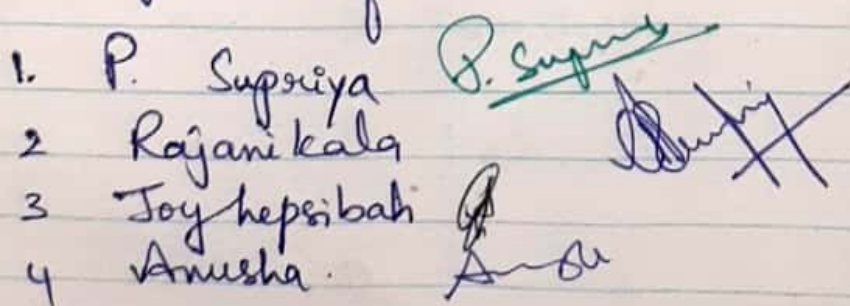 1. P. Supriya P. Supriya
2 Rajanikala
3 Joy hepsibah
4 Anusha.